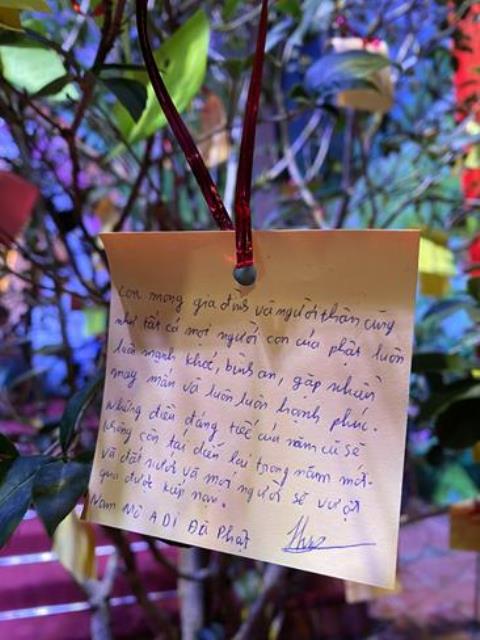 con mong gia đình và người thân cũng
như tất cả mọi người con của phật luôn
luôn mạnh khoẻ, bình an, gặp nhiều
may mắn và luôn luôn hạnh phúc.
Những điều đáng tiếc của năm cũ sẽ
không còn tái diễn lại trong năm mới.
và đất nước và mọi người sẽ vượt
qua được kiếp nạn.
Nam Mô A Di Đà Phật